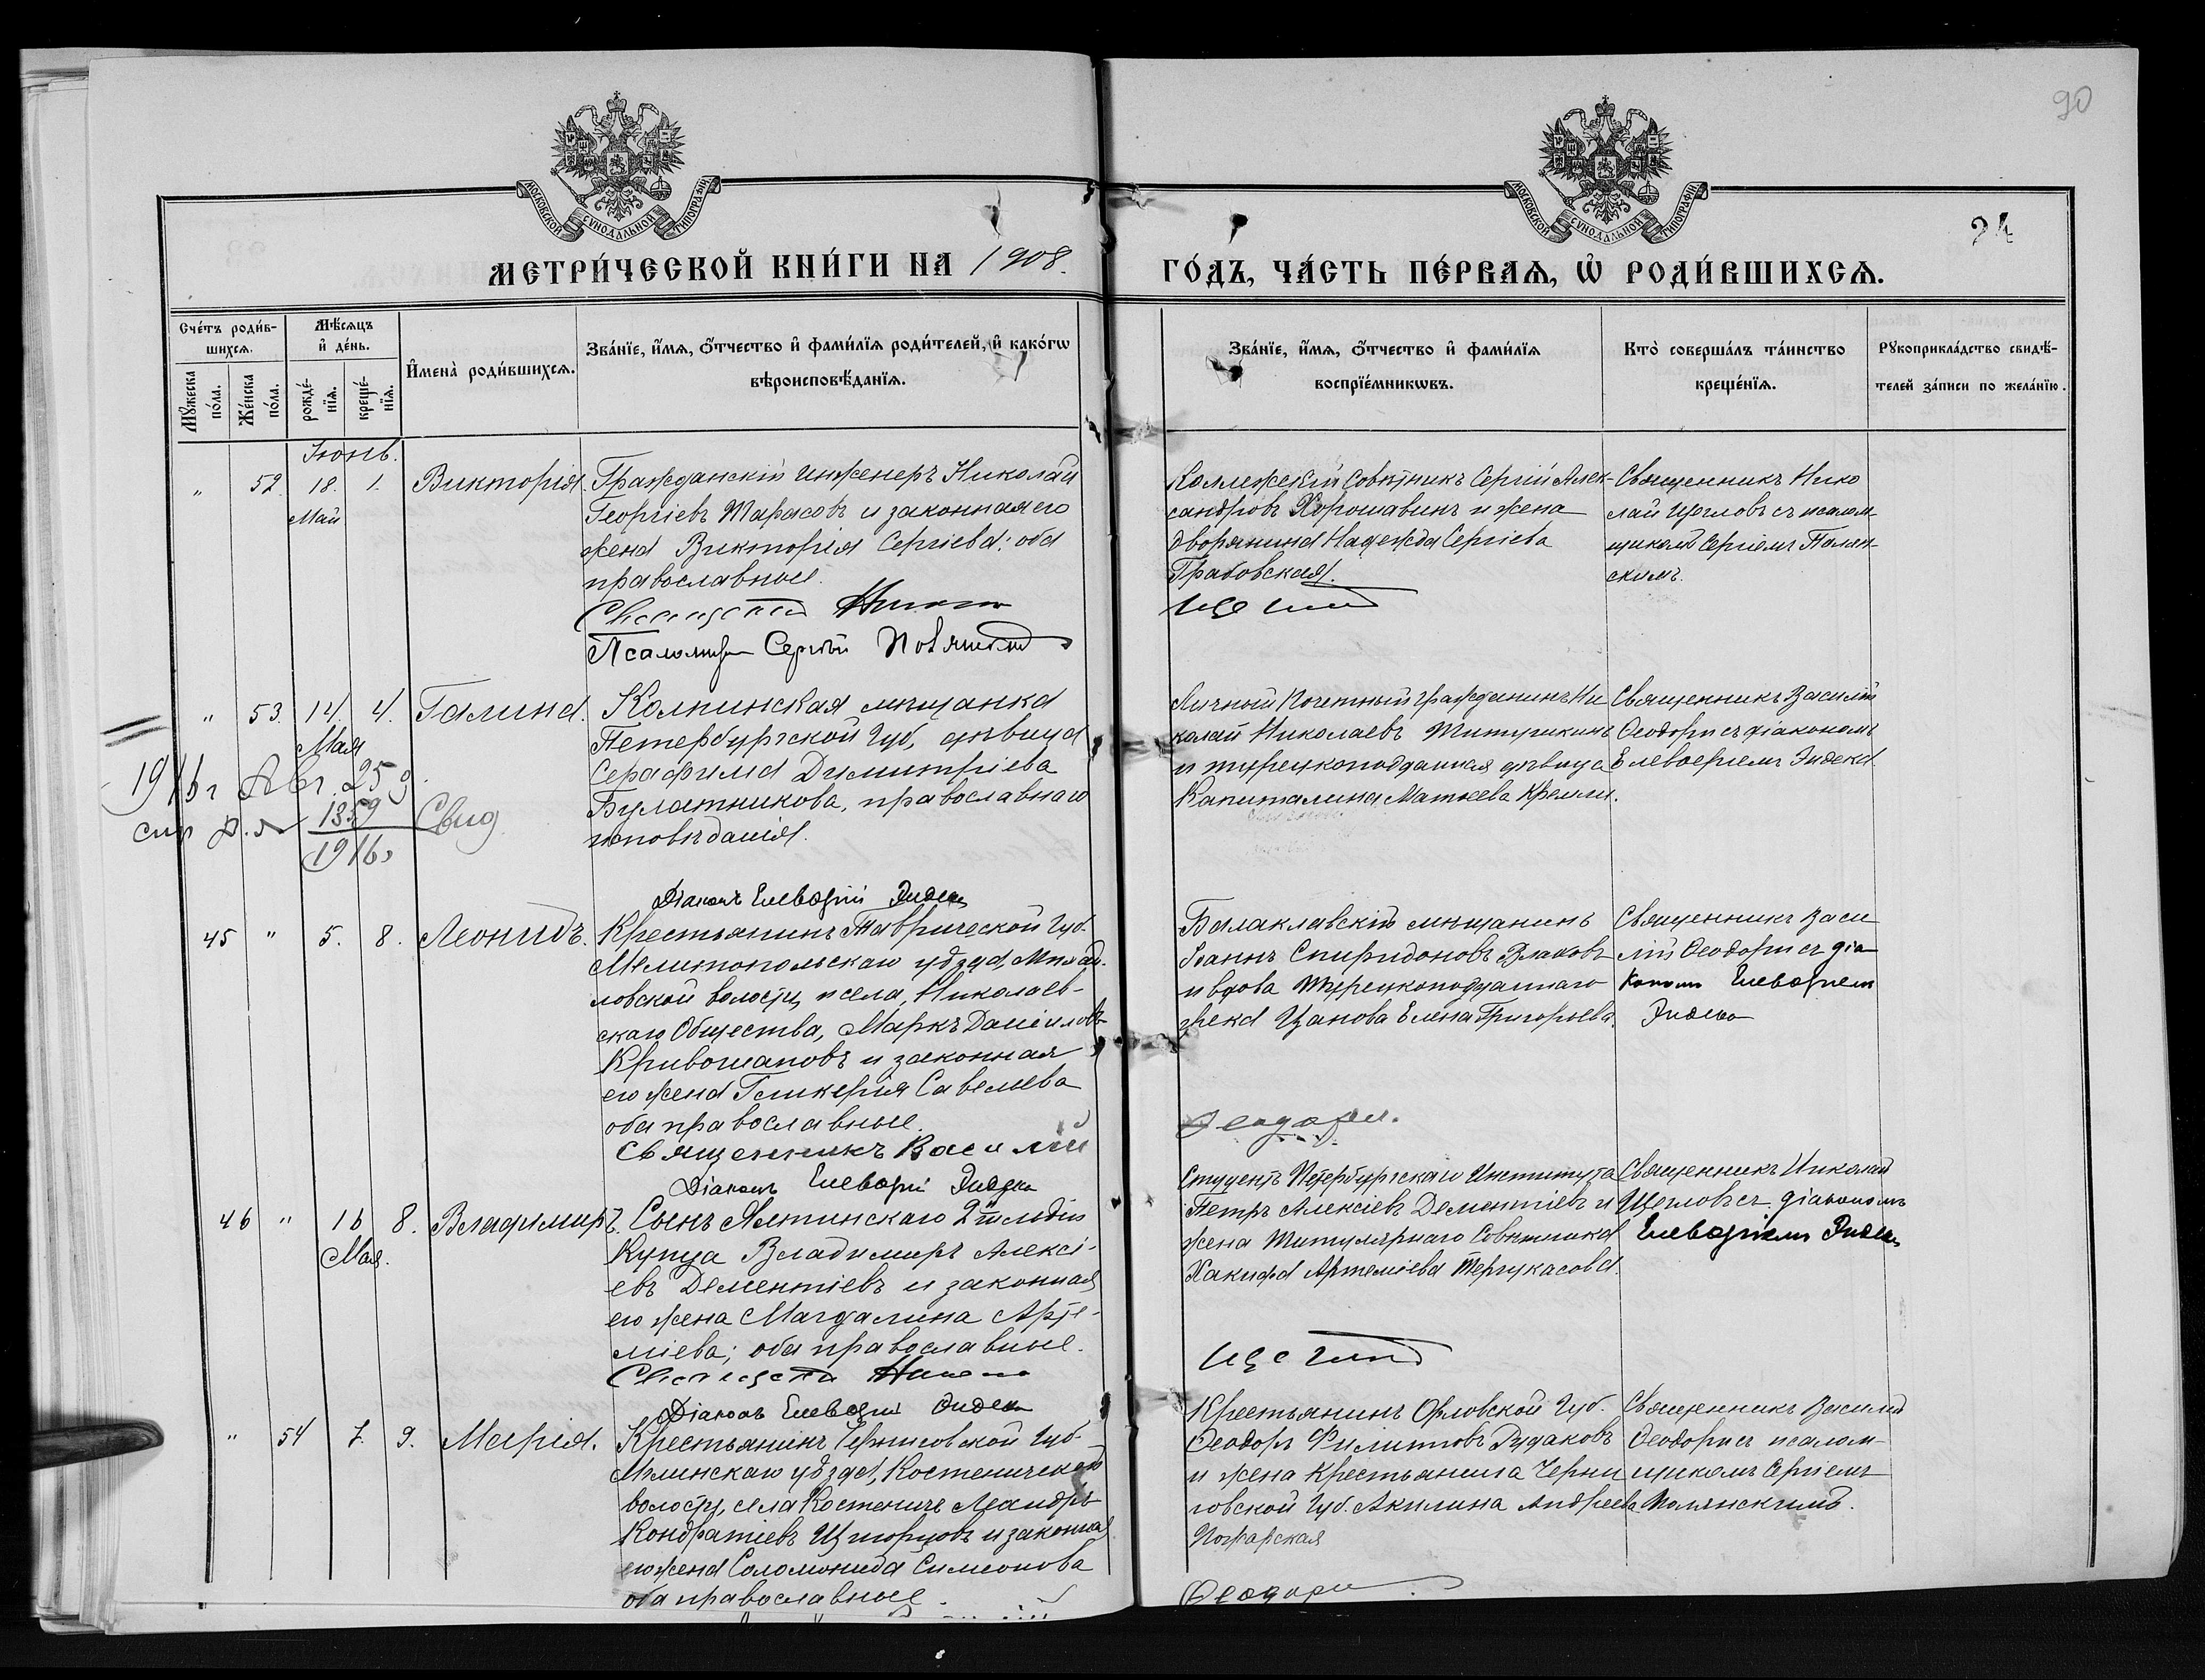 90
24
МОСКОВСКОЙ СѴНОДАЛЬНОЙ ТИПОГРАФІИ
МОСКОВСКОЙ СѴНОДАЛЬНОЙ ТИПОГРАФІИ
МЕТРИ́ЧЕСКОЙ КНИ́ГИ НА 1908.
ГО́ДЪ, ЧА́СТЬ ПЕ́РВАѦ, Ѡ҆ РОДИ́ВШИХСѦ.
Сче́тъ роди́в-
шихсѧ.
Мꙋ́жеска по́ла.
Же́нска по́ла.
Мѣ́сѧцъ
и҆ де́нь.
рожде́-нїѧ.
креще́-нїѧ.
И҆мена̀ роди́вшихсѧ.
Зва́нїе, и҆́мѧ, ѻ҆́тчество и҆ фами́лїѧ роди́телей, и҆ како́гѡ
вѣроисповѣ́данїѧ.
Зва́нїе, и҆́мѧ, ѻ҆́тчество и҆ фами́лїѧ
воспрїе́мникѡвъ.
Кто̀ соверша́лъ та́инство
креще́нїѧ.
Рꙋкоприкла́дство свидѣ́-
телей за́писи по жела́нїю.
Іюнь.
" 52. 18. 1. Викторія.
Май
Гражданскій инженеръ Николай
Георгіевъ Тарасовъ и законная его
жена Викторія Сергіева; оба
православные.
Псаломщ Сергій
Коллежскій Совѣтникъ Сергій Алек-
сандровъ Хорошавинъ и жена
дворянина Надежда Сергіева
Грабовская.
Священникъ Нико
лай Щегловъ съ псалом-
щикомъ Сергіемъ Полян-
скимъ.
" 53. 14. 4. Галина.
Мая
1916 г Авг. 25 д.
1359
1916
Свид
Колпинская мѣщанка
Петербургской губ, дѣвица
Серафима Димитріева
Булатникова, православнаго
исповѣданія.
Діаконъ Елевѳерій Эндека
Личный Почетный гражданинъ Ни
колай Николаевъ Титушкинъ
и турецкоподданная дѣвица
Капиталина Матѳеева Кремли.
Священникъ Василій
Ѳеодори съ діакономъ
Елевѳеріемъ Эндека
45 " 5. 8. Леонидъ.
Крестьянинъ Таврической Губ.
Мелитопольскаго уѣзда, Михай-
ловской волости, и села, Николаев-
скаго Общества, Маркъ Даніиловъ
Кривошаповъ и законная
его жена Гликерія Савельева
оба православные.
Священникъ Василій
Діаконъ Елевѳерій Эндека
Балаклавскій мѣщанинъ
Іоаннъ Спиридоновъ Влаховъ
и вдова турецкоподданнаго
грека Цанова Елена Григорьева.
Ѳеодори.
Священникъ Васи
лій Ѳеодори съ діа
кономъ Елевѳеріемъ
Эндека
46 " 16 8. Владимиръ.
Мая.
Сынъ Ялтинскаго 2й гильдіи
Купца Владимиръ Алексі-
евъ Дементіевъ и законная
его жена Магдалина Арте-
міева; оба православные.
Діаконъ Елевѳерій Эндека
Студентъ Петербургскаго Института
Петръ Алексіевъ Дементіевъ и
жена Титулярнаго Совѣтника
Артеміева Тергукасова.
Священникъ Николай
Щегловъ съ діакономъ
Елевѳеріемъ Эндека
" 54 7. 9. Марія.
Крестьянинъ Черниговской губ.
Мглинскаго уѣзда, Костеничской
волости, села Костеничъ Леандръ
Кондратіевъ и законная
его жена Соломонида Симеонова
оба православные.
Крестьянинъ Орловской Губ.
Ѳеодоръ Филипповъ Рудаковъ
и жена крестьянина Черни
говской губ. Акилина Андреева
Пожарская
Ѳеодори
Священникъ Василій
Ѳеодори съ псалом-
щикомъ Сергіемъ
Полянскимъ.